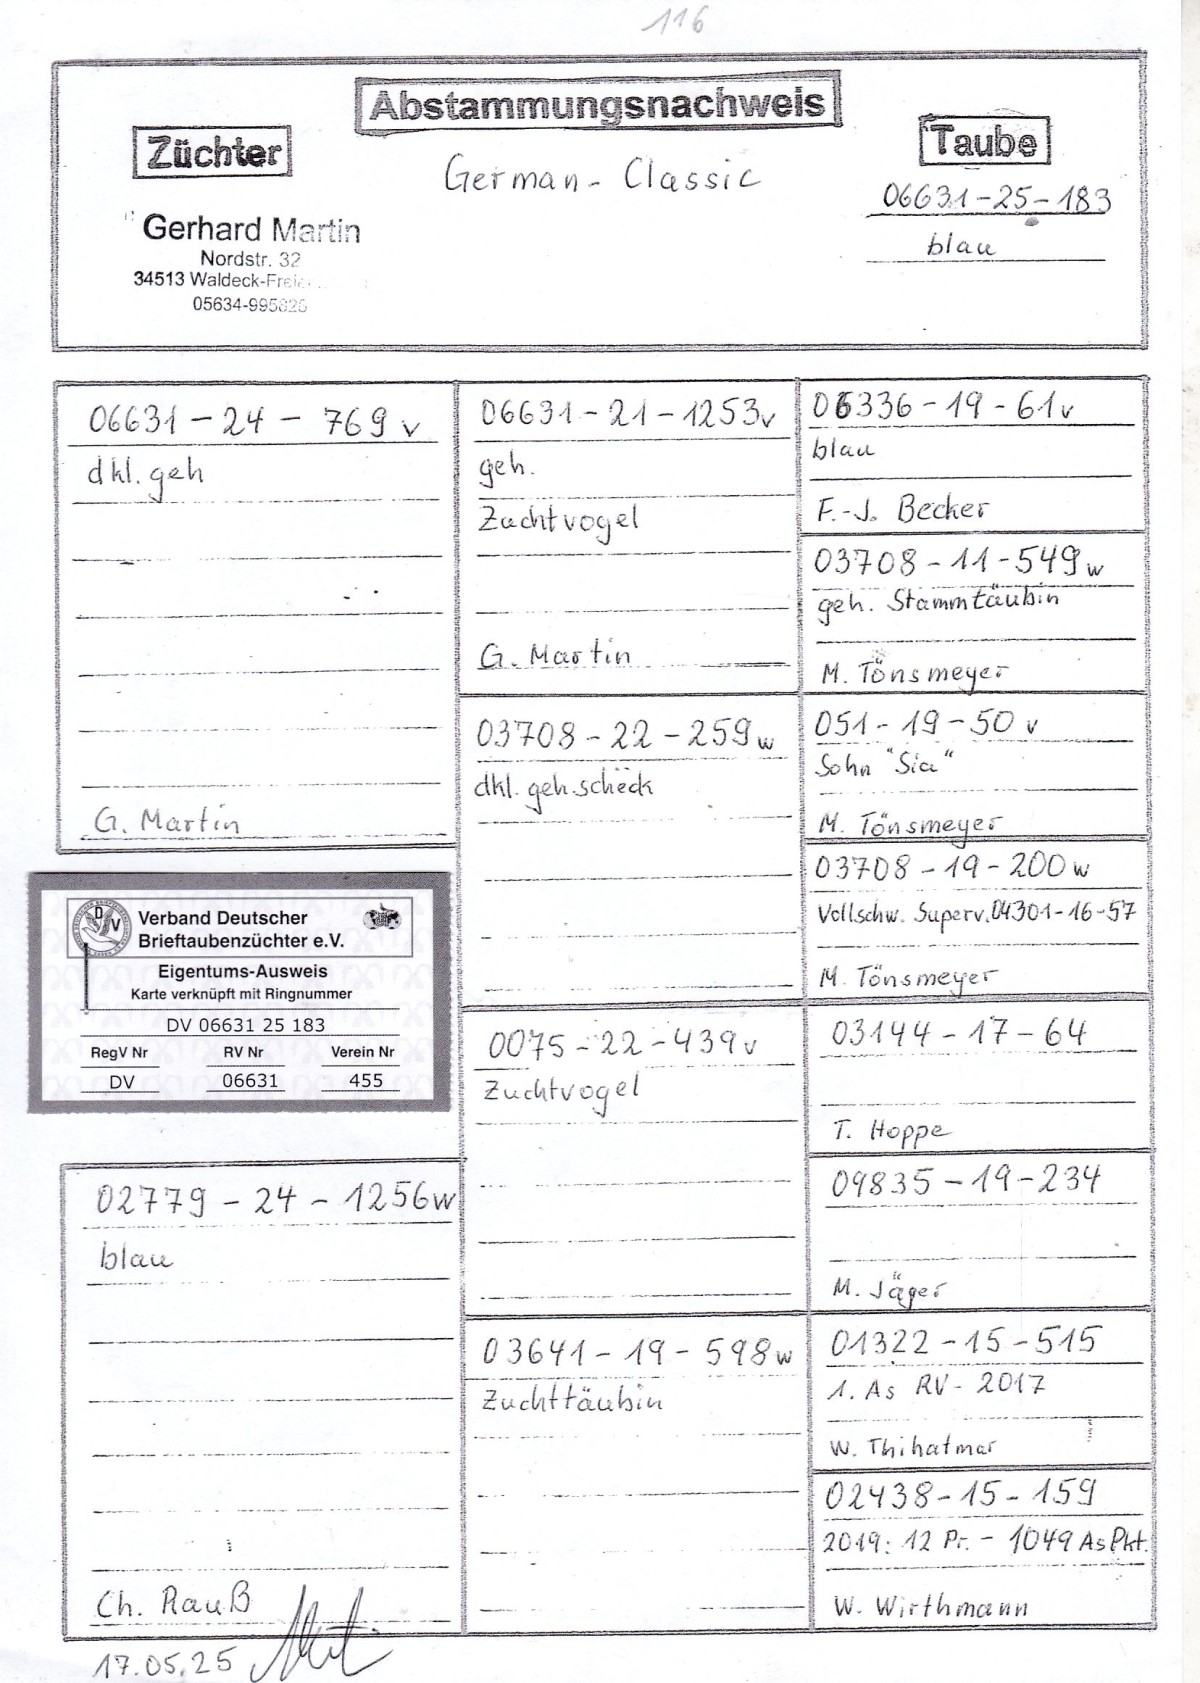 116
Abstammungsnachweis
Züchter
Taube
German - Classic
06631-25-183
blau
Gerhard Martin
Nordstr. 32
34513 Waldeck-Freie
05634-995826
06631-24-769 v
dkl. geh
G. Martin
06631-21-1253 v
geh.
Zuchtvogel
G. Martin
03708-22-259 w
dkl. geh.scheck
06336-19-61 v
blau
F.-J. Becker
03708-11-549 w
geh. Stammtäubin
M. Tönsmeyer
051-19-50 v
Sohn "Sia"
M. Tönsmeyer
03708-19-200 w
Vollschw. Superv. 04301-16-57
M. Tönsmeyer
DV
Verband Deutscher
Brieftaubenzüchter e.V.
Eigentums-Ausweis
Karte verknüpft mit Ringnummer
DV 06631 25 183
RegV Nr RV Nr Verein Nr
DV 06631 455
02779-24-1256 w
blau
Ch. Rauß
0075-22-439 v
Zuchtvogel
03641-19-598 w
Zuchttäubin
03144-17-64
T. Hoppe
09835-19-234
M. Jäger
01322-15-515
1. As RV-2017
W. Thihatmar
02438-15-159
2019: 12 Pr. - 1049 As Pkt.
W. Wirthmann
17.05.25